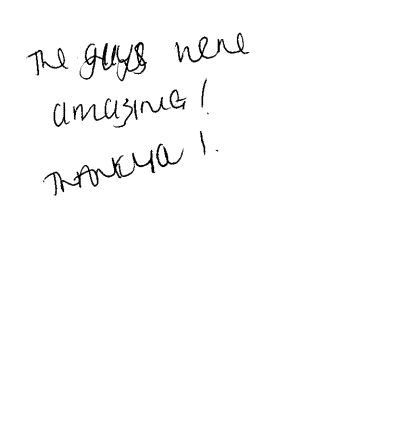 The guys were
amazing!
Thankya!